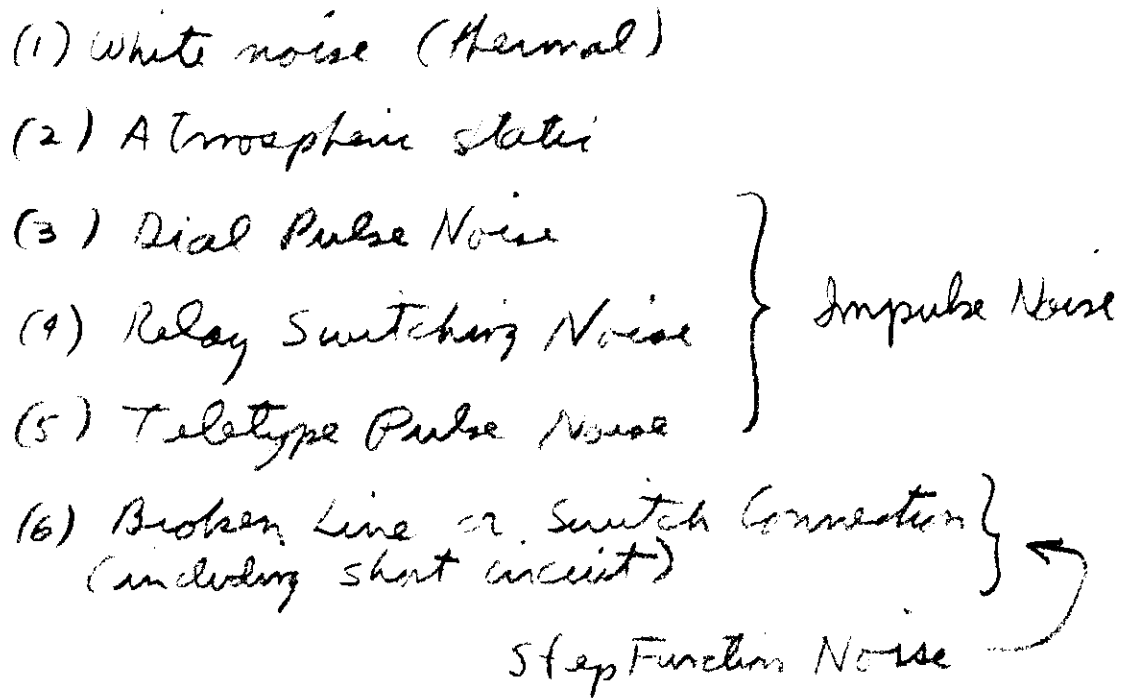 (1) White noise (thermal)
(2) Atmospheric static
(3) Dial Pulse Noise
(4) Relay Switching Noise
(5) Teletype Pulse Noise
Impulse Noise
(6) Broken Line or Switch Connection
(including short circuit)
Step Function Noise